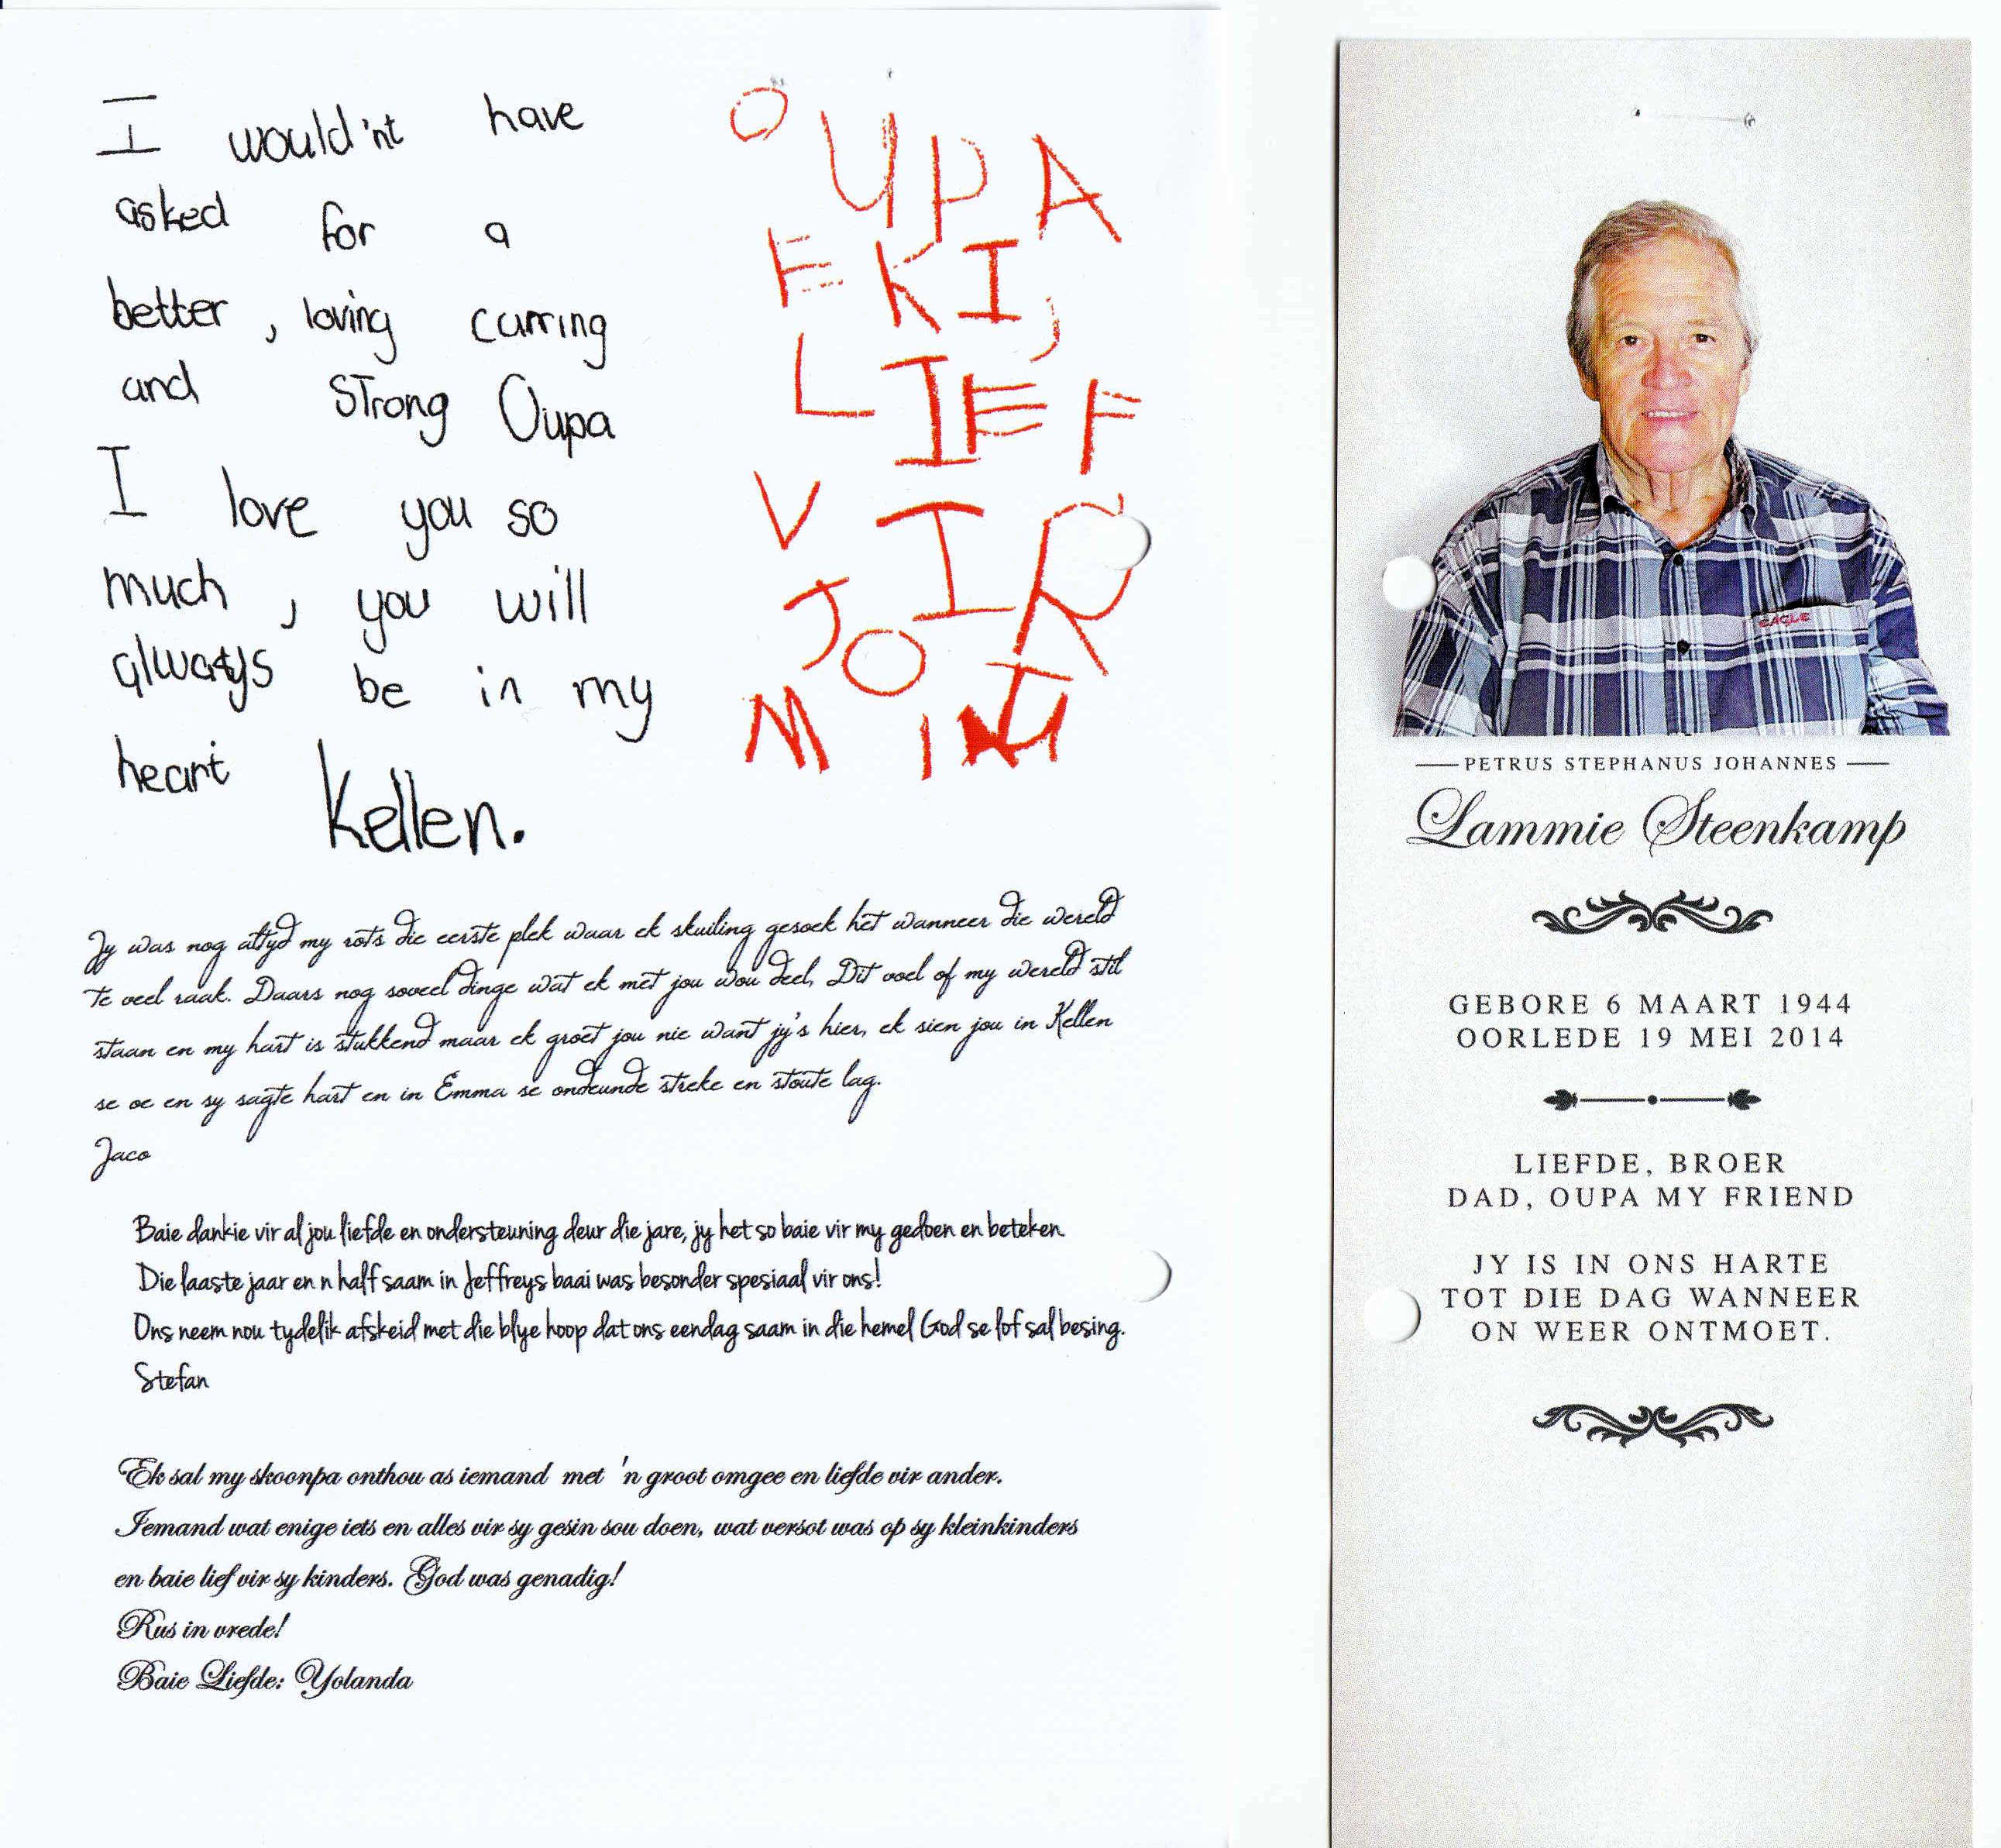 I would'nt have
asked for a
better, loving carring
and STrong Oupa
I love you so
much, you will
always be in my
heart Kellen.
OUPA
EK I
LIEF
VIR
JO
Jy was nog altyd my rots die eerste plek waar ek skuiling gesoek het wanneer die wereld
te veel raak. Daars nog soveel dinge wat ek met jou wou deel, Dit voel of my wereld stil
staan en my hart is stukkend maar ek groet jou nie want jy's hier, ek sien jou in Kellen
se oe en sy sagte hart en in Emma se ondeunde streke en stoute lag.
Jaco
Baie dankie vir al jou liefde en ondersteuning deur die jare, jy het so baie vir my gedoen en beteken.
Die laaste jaar en n half saam in Jeffreys baai was besonder spesiaal vir ons!
Ons neem nou tydelik afskeid met die blye hoop dat ons eendag saam in die hemel God se lof sal besing.
Stefan
Ek sal my skoonpa onthou as iemand met 'n groot omgee en liefde vir ander.
Iemand wat enige iets en alles vir sy gesin sou doen, wat versot was op sy kleinkinders
en baie lief vir sy kinders. God was genadig!
Rus in vrede!
Baie Liefde: Yolanda
EAGLE
PETRUS STEPHANUS JOHANNES
Lammie Steenkamp
GEBORE 6 MAART 1944
OORLEDE 19 MEI 2014
LIEFDE, BROER
DAD, OUPA MY FRIEND
JY IS IN ONS HARTE
TOT DIE DAG WANNEER
ON WEER ONTMOET.